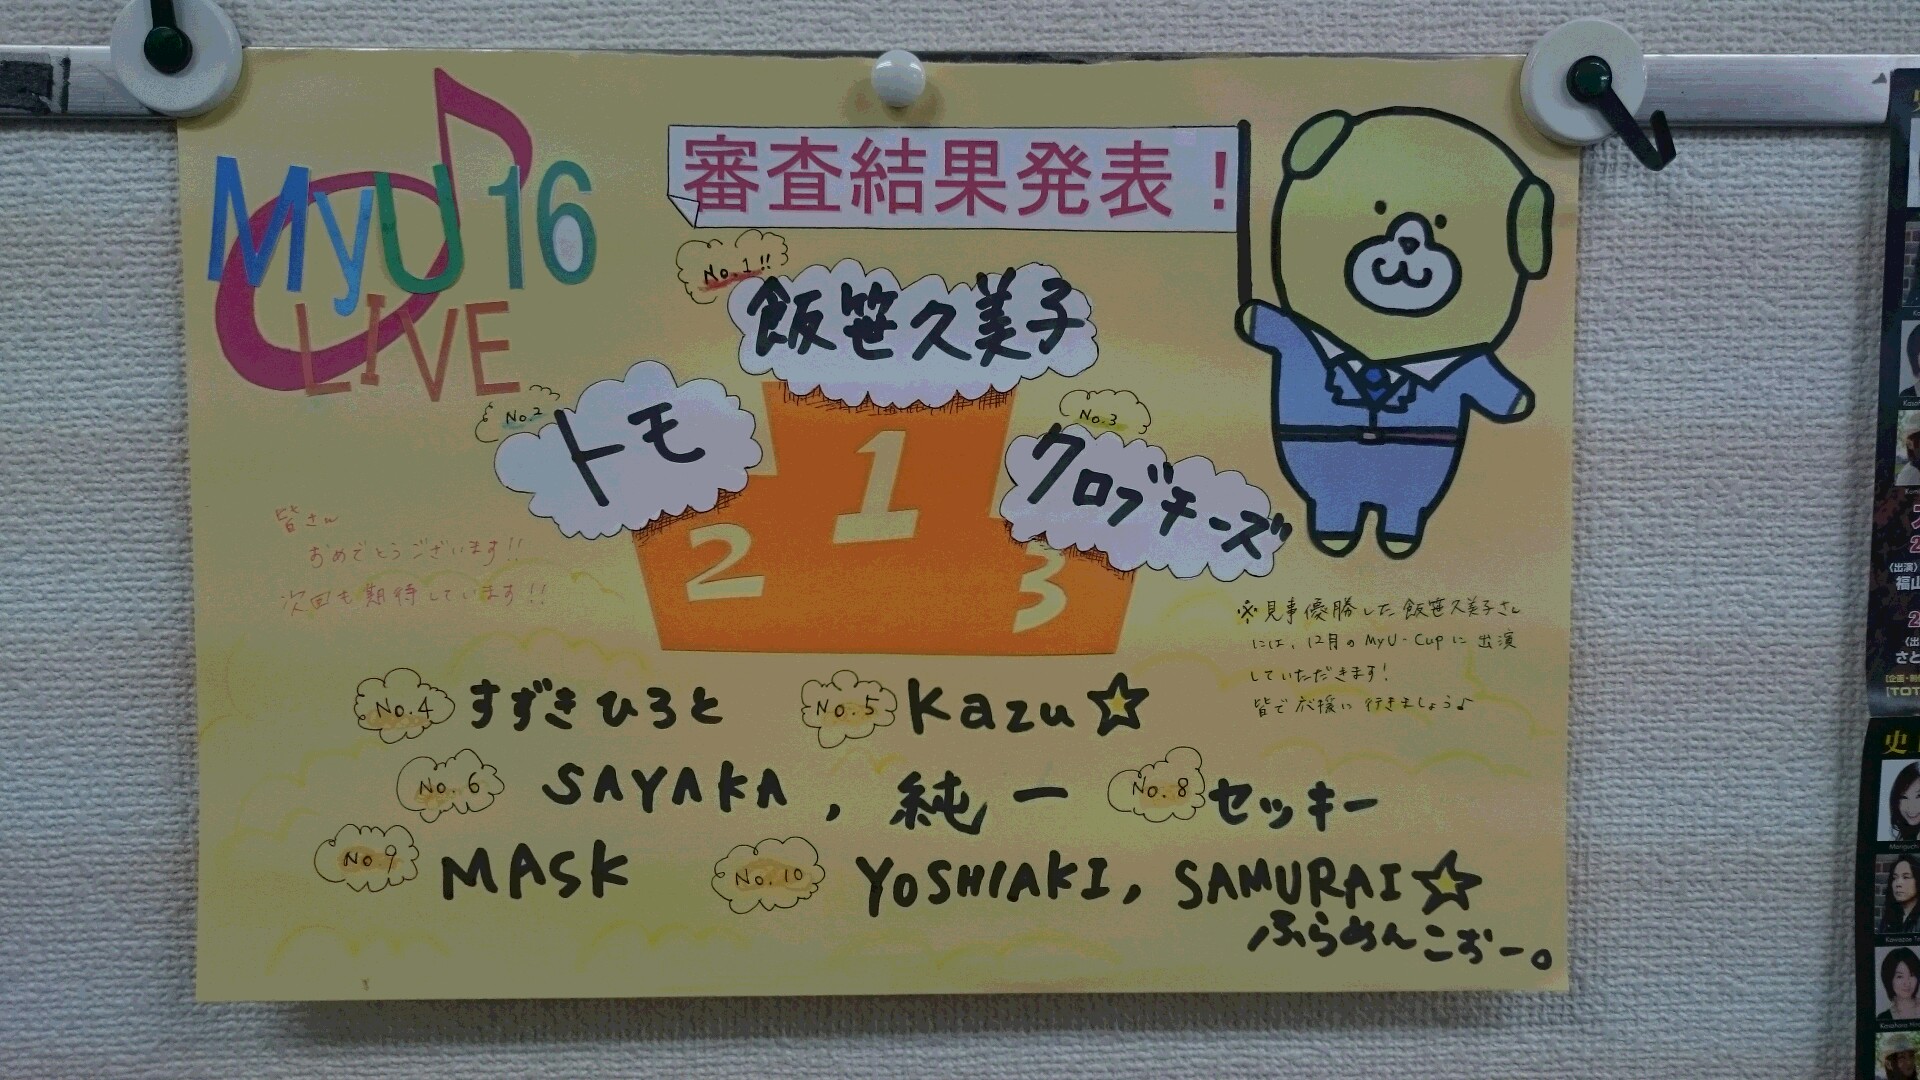 MyU16
LIVE
審査結果発表！
No.1!!
飯笹久美子
No.2
トモ
No.3
クロブチーズ
1
2
3
皆さん
おめでとうございます!!
次回も期待しています!!
※見事優勝した飯笹久美子さん
には、12月のMyU-Cupに出演
していただきます!
皆で応援に行きましょう♪
No.4 すずきひろと No.5 Kazu☆
No.6 SAYAKA, 純一 No.8 セッキー
No.9 MASK No.10 YOSHIAKI, SAMURAI☆
ふらめんこぎー。